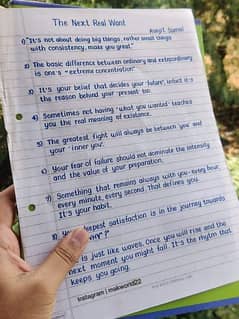 The Next Real Want
Amit Samal
1) "It's not about doing big things, rather small things
with consistency, make you great."
2) The basic difference between ordinary and extraordinary
is one's "extreme concentration".
3) It's your belief that decides your 'future', infact it's
the reason behind your 'present' too.
4) Sometimes not having 'what you wanted' teaches
you the real meaning of existance.
5) The greatest fight will always be between 'you' and
your 'inner you'.
6) Your fear of failure should not dominate the intensity
and the value of your preparation.
7) Something that remains always with you - every hour,
every minute, every second. That defines you.
It's your habit.
8) deepest satisfaction is in the journey towards
WHY?"
is just like waves. Once you will rise and the
next moment you might fall. It's the rhythm that
keeps you going.